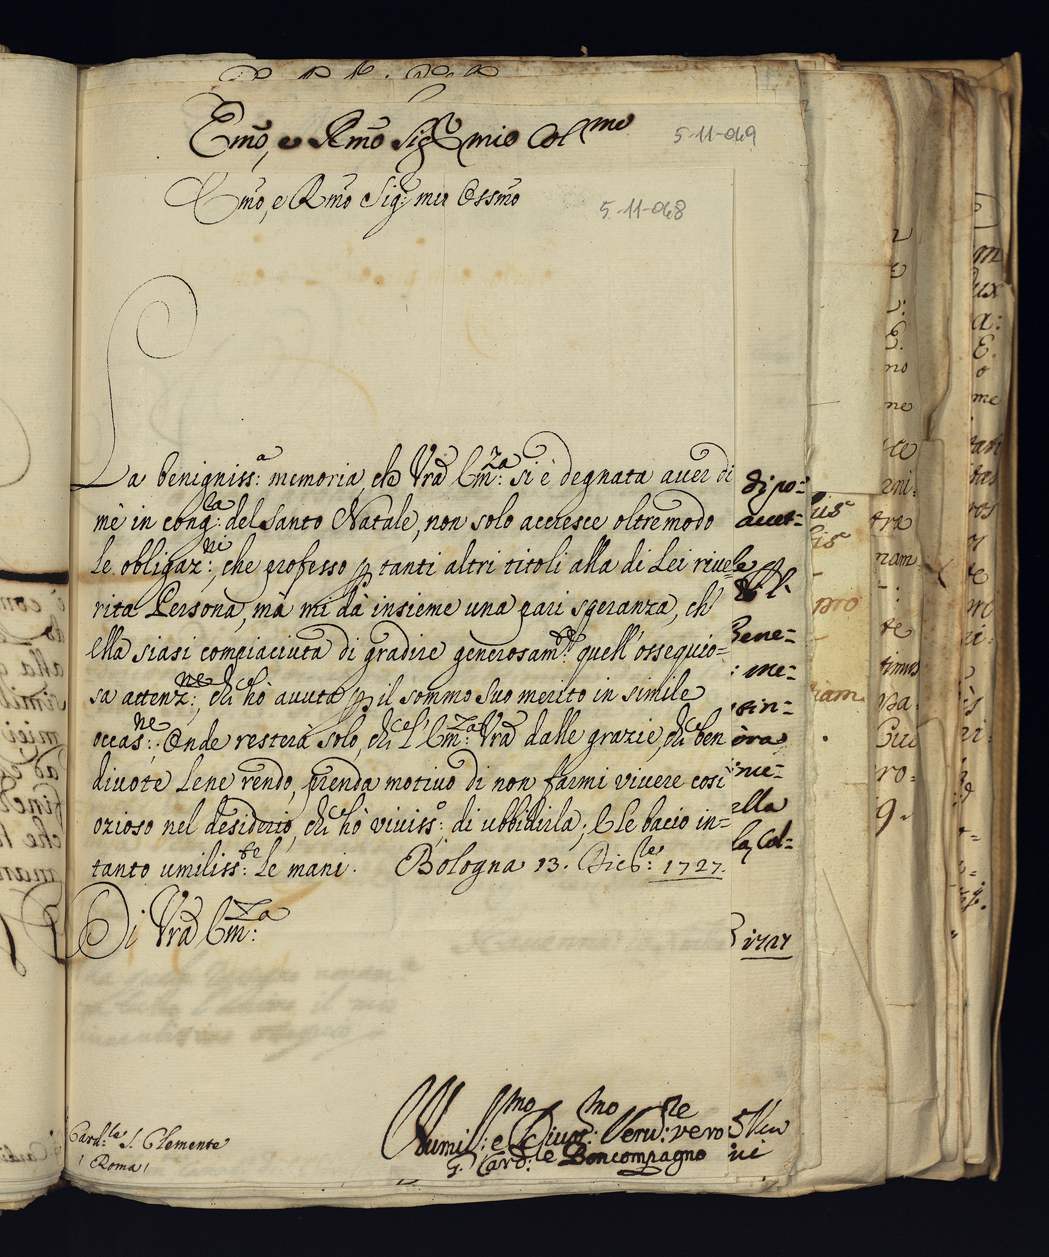 Emo, e Rmo Sig.r mio Col.mo
5-11-049
Emo, e Rmo Sig.r mio Ossmo
5-11-048
La benigniss:a memoria che Vra Em:za si è degnata aver di
mè in cong:la del Santo Natale, non solo accresce oltremodo
le obligaz:ni, che professo p tanti altri titoli alla di Lei rive=
rita Persona, mà mi dà insieme una pari speranza, ch'
ella siasi compiaciuta di gradire generosam:te quell'ossequio=
sa attenz:ne, che hò avuta p il sommo suo merito in simile
occas:ne. Onde resterà solo, che l'Em:za Vra dalle grazie, che ben
divote Le ne rendo, prenda motivo di non farmi vivere così
ozioso nel desiderio, che hò viviss:o di ubbidirla; E le bacio in=
tanto umiliss:te le mani. Bologna 13. Dicb:re 1727.
Di Vra Em:za
Card:le S. Clemente
(Roma)
Humil:mo e Divot:mo Seru:re vero
G. Card:le Boncompagno
dipo=
accet=
Bene=
: me=
ora
ella
la, Col=
1727